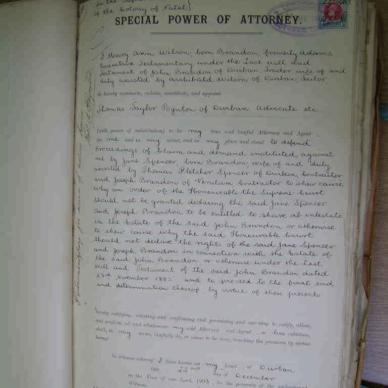 In the Supreme
of the Colony of Natal
SPECIAL POWER OF ATTORNEY.
I Mary Ann Wilson, born Brandon formerly Adams
Executrix Testamentary under the Last Will and
Testament of John Brandon of Durban Trader wife of and
duly assisted by Archibald Wilson of Durban Tailor
do hereby nominate, constitute, and appoint
Thomas Taylor Poynton of Durban Advocate etc
(with power of substitution) to be my true and lawful Attorney and Agent
in my name, and in my place and stead to defend
Proceedings of Claim and demand instituted against
me by Jane Spencer born Brandon wife of and duly
assisted by Thomas Fletcher Spencer of Durban Contractor
and Joseph Brandon of Verulam Contractor to shew cause
why an order of the Honourable the Supreme Court
should not be granted declaring the said Jane Spencer
and Joseph Brandon to be entitled to share ab intestato
in the Estate of the said John Brandon or otherwise
to shew cause why the said Honourable Court
should not declare the rights of the said Jane Spencer
and Joseph Brandon in connection with the Estate of
the said John Brandon or otherwise under the Last
Will and Testament of the said John Brandon dated
November and to proceed to the final end
and determination thereof by virtue of these presents
hereby ratifying, allowing and confirming and promising and agreeing to ratify, allow,
and confirm all and whatsoever my said Attorney and Agent
may lawfully do, or cause to be done, touching the premises by virtue
hereof.
In witness whereof I have hereunto set my hand at Durban
this day of December
in the Year of our Lord 1903 in the presence of the
Witnesses